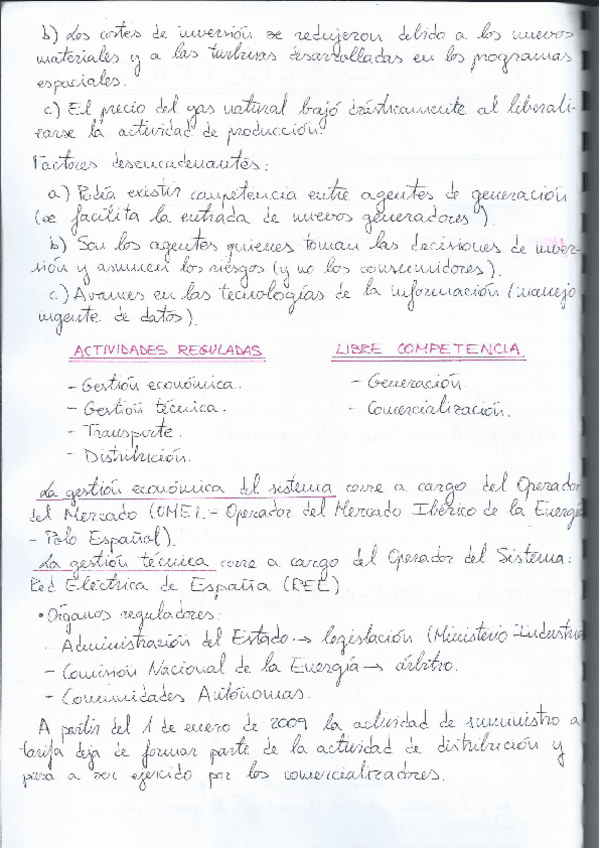 b) Los costes de inversión se redujeron debido a los nuevos
materiales y a las turbinas desarrolladas en los programas
espaciales.
c) El precio del gas natural bajó drásticamente al liberali-
zarse la actividad de producción.
Factores desencadenantes:
a) Podía existir competencia entre agentes de generación
(se facilita la entrada de nuevos generadores).
b) Son los agentes quienes toman las decisiones de inver-
sión y asumen los riesgos (y no los consumidores).
c) Avances en las tecnologías de la información (manejo
ingente de datos).
ACTIVIDADES REGULADAS LIBRE COMPETENCIA
- Gestión económica. - Generación.
- Gestión técnica. - Comercialización.
- Transporte.
- Distribución.
La gestión económica del sistema corre a cargo del Operador
del Mercado (OMEL - Operador del Mercado Ibérico de la Energía
- Polo Español).
La gestión técnica corre a cargo del Operador del Sistema:
Red Eléctrica de España (REE)
• Órganos reguladores:
- Administración del Estado → legislación (Ministerio Industria
- Comisión Nacional de la Energía → árbitro.
- Comunidades Autónomas.
A partir del 1 de enero de 2009 la actividad de suministro a
tarifa deja de formar parte de la actividad de distribución y
pasa a ser ejercido por los comercializadores.